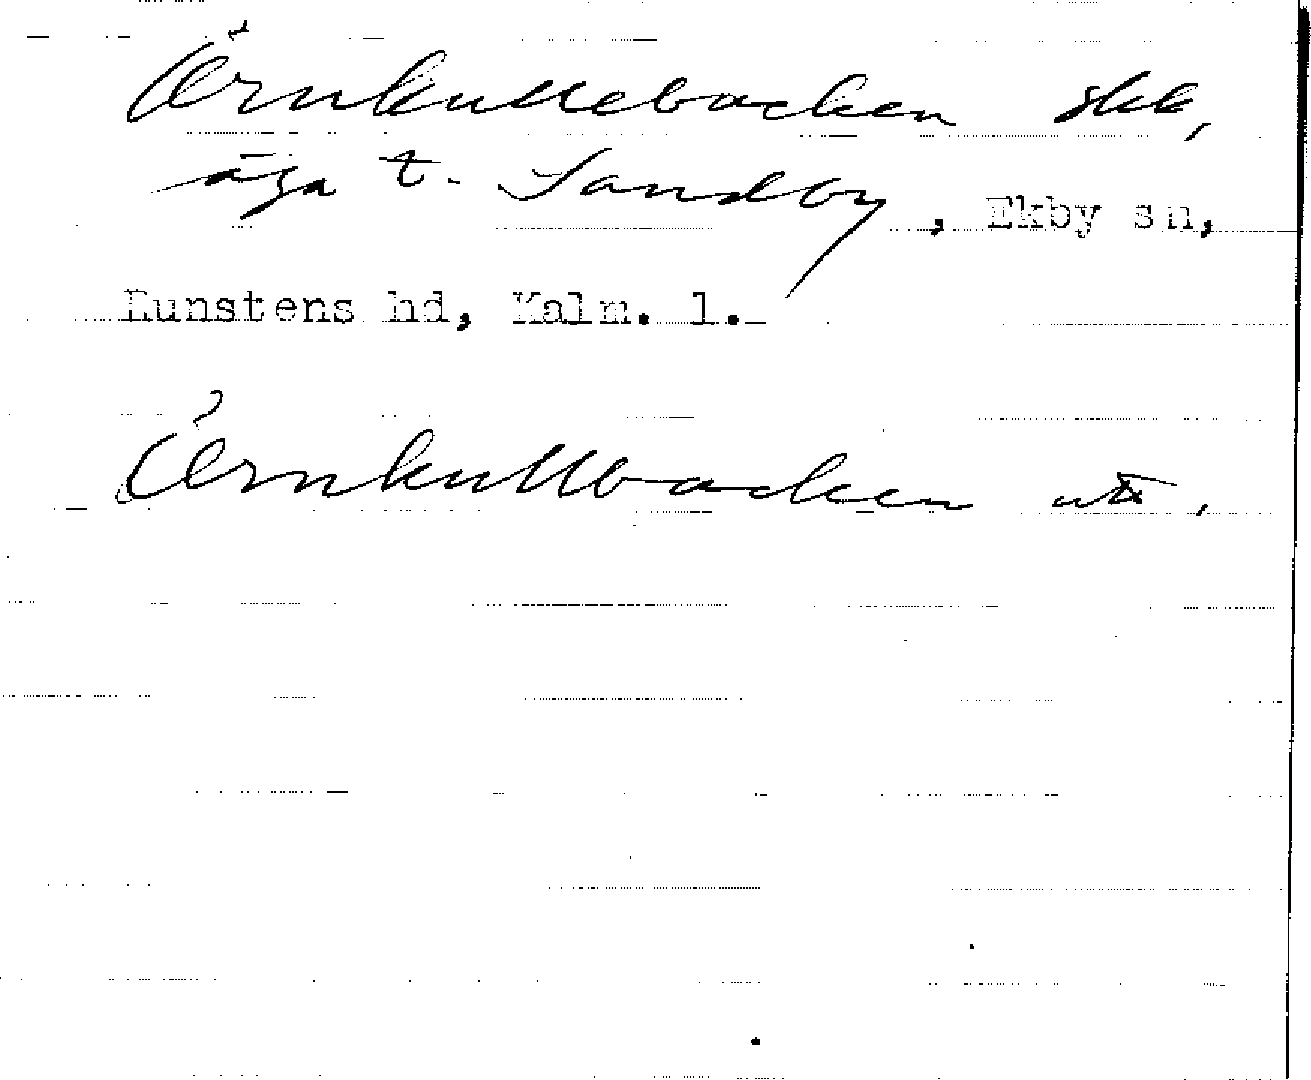 Örnkullebacken skk,
äga t. Sandby, Ekby sn,
Runstens hd, Kalm. l.
Örnkullbacken